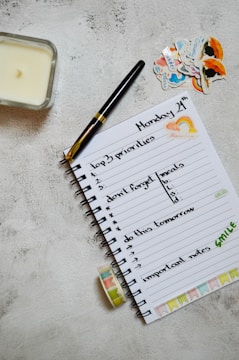 Monday
top 3 priorities
1.
2.
3.
don't forget
meals
do this tomorrow
important notes
SMILE